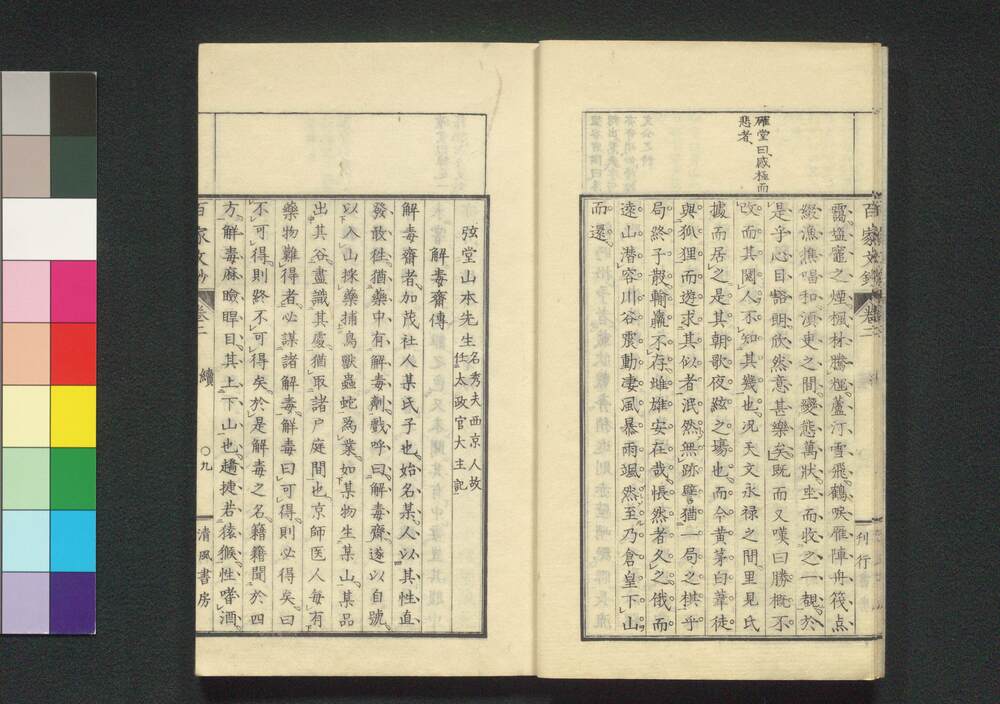 確堂曰感極而
悲者
靄塩竈之煙楓林騰極蘆汀雪飛鶴唳雁陣舟筏点
綴漁樵唱和湏臾之間變態萬狀坐而收之一覩於
是乎心目豁明欣然意甚樂矣既而又嘆曰勝概不
改而其閱人不知其幾也况天文永禄之間里見氏
據而居之是其朝歌夜絃之塲也而今黄茅白葦徒
與狐狸而遊求其似者泯然無跡譬猶一局之棋乎
局終子散輸贏不存雌雄安在哉悵然者久之俄而
遠山潜容川谷震動凄風暴雨颯然至乃倉皇下山
而還
百家文鈔 卷二
刊行
弦堂山本先生 名秀夫西京人故
任太政官大主記
解毒齋傳
解毒齋者加茂社人某氏子也始名某人以其性直
發敢徃猶藥中有解毒劑戲呼曰解毒齋遂以自號
以入山採藥捕鳥獸蟲蛇為業如某物生某山某品
出其谷盡識其處猶取諸戸庭間也京師医人每有
藥物難得者必謀諸解毒解毒曰可得則必得矣曰
不可得則終不可得矣於是解毒之名籍籍聞於四
方解毒麻瞼睅目其上下山也趫捷若猿猴性嗜酒
百家文鈔 卷二 續 〇九 清風書房